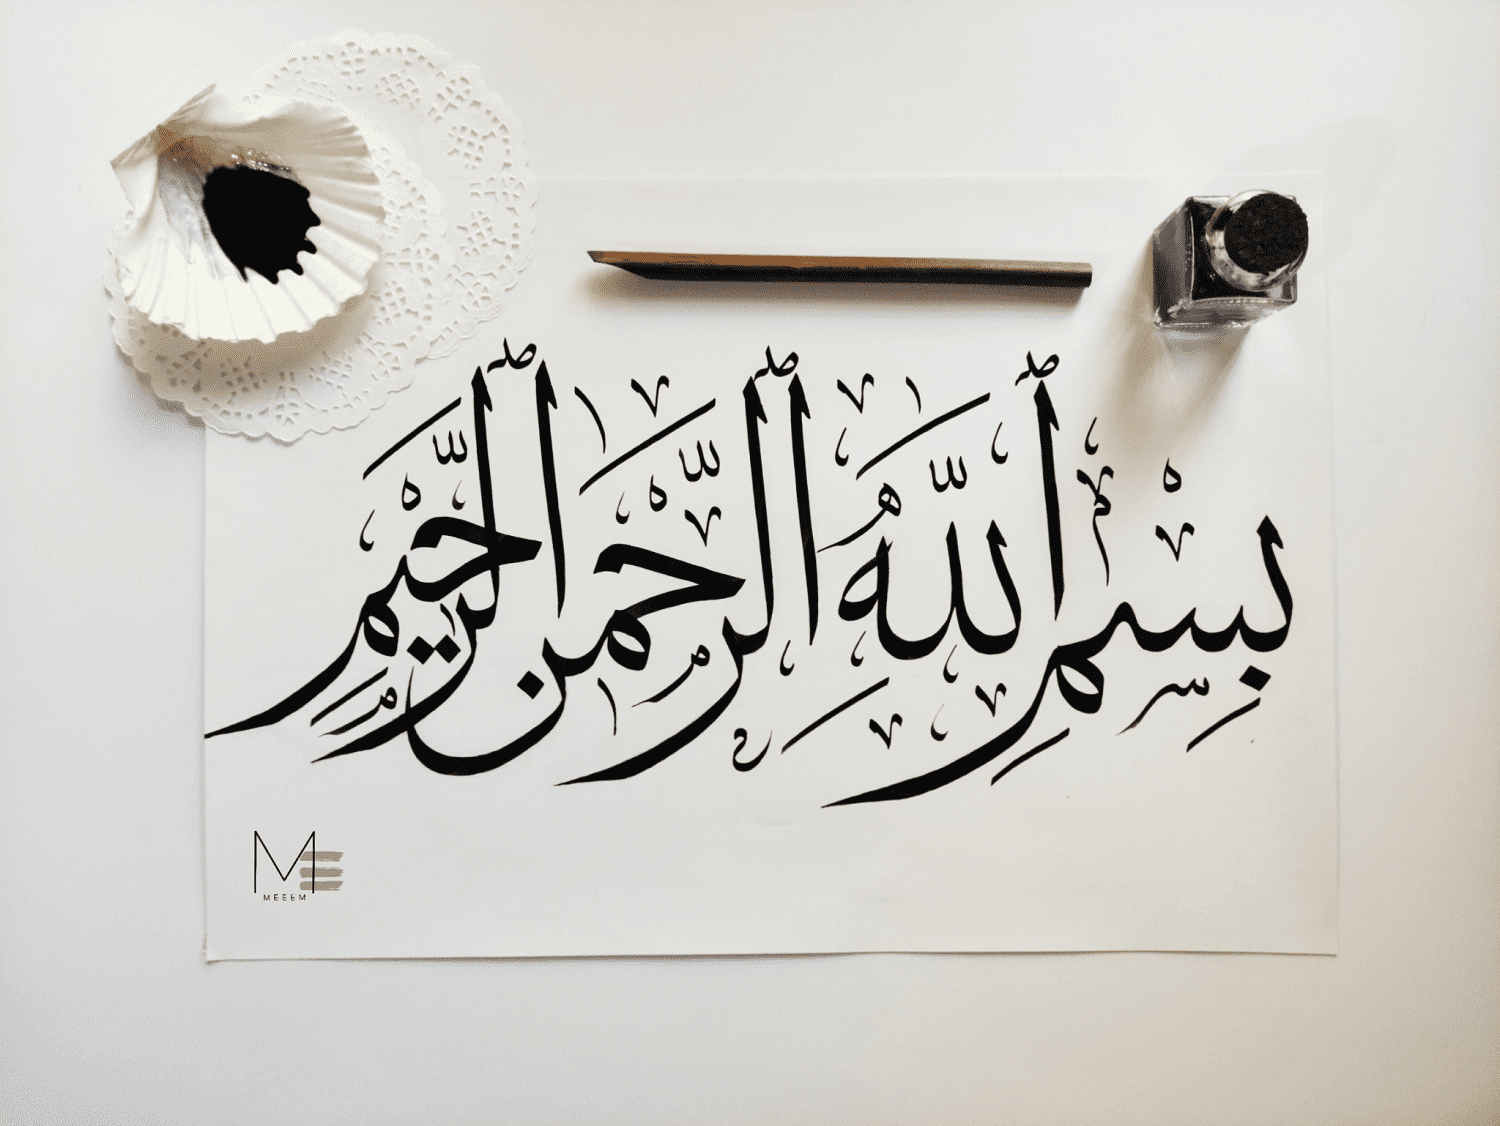 بِسْمِ ٱللَّهِ ٱلرَّحْمَٰنِ ٱلرَّحِيمِ
ME
MEEEM